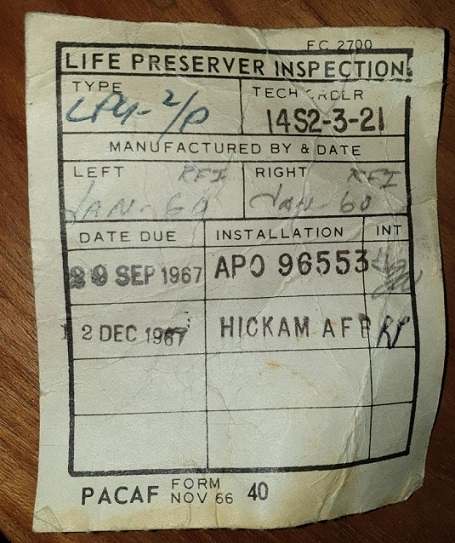 FC 2700
LIFE PRESERVER INSPECTION
TYPE
LPU-2/P
TECH ORDER
14S2-3-21
MANUFACTURED BY & DATE
LEFT RFI
JAN-60
RIGHT RFI
Jan-60
DATE DUE INSTALLATION INT
29 SEP 1967 APO 96553
12 DEC 1967 HICKAM AFB RP
PACAF FORM NOV 66 40